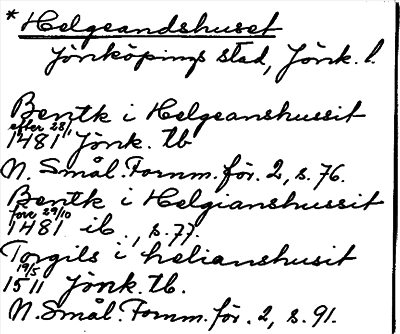 * Helgeandshuset
Jönköpings stad, Jönk. l.
Bentk i Helgeanshussit
efter 28/1
1481 Jönk. tb
N. Smål. Fornm. för. 2, s. 76.
Bentk i Helgianshussit
före 29/10
1481 ib., s. 77.
Torgils i helianshusit
19/5
1511 Jönk. tb.
N. Smål. Fornm. för. 2, s. 91.